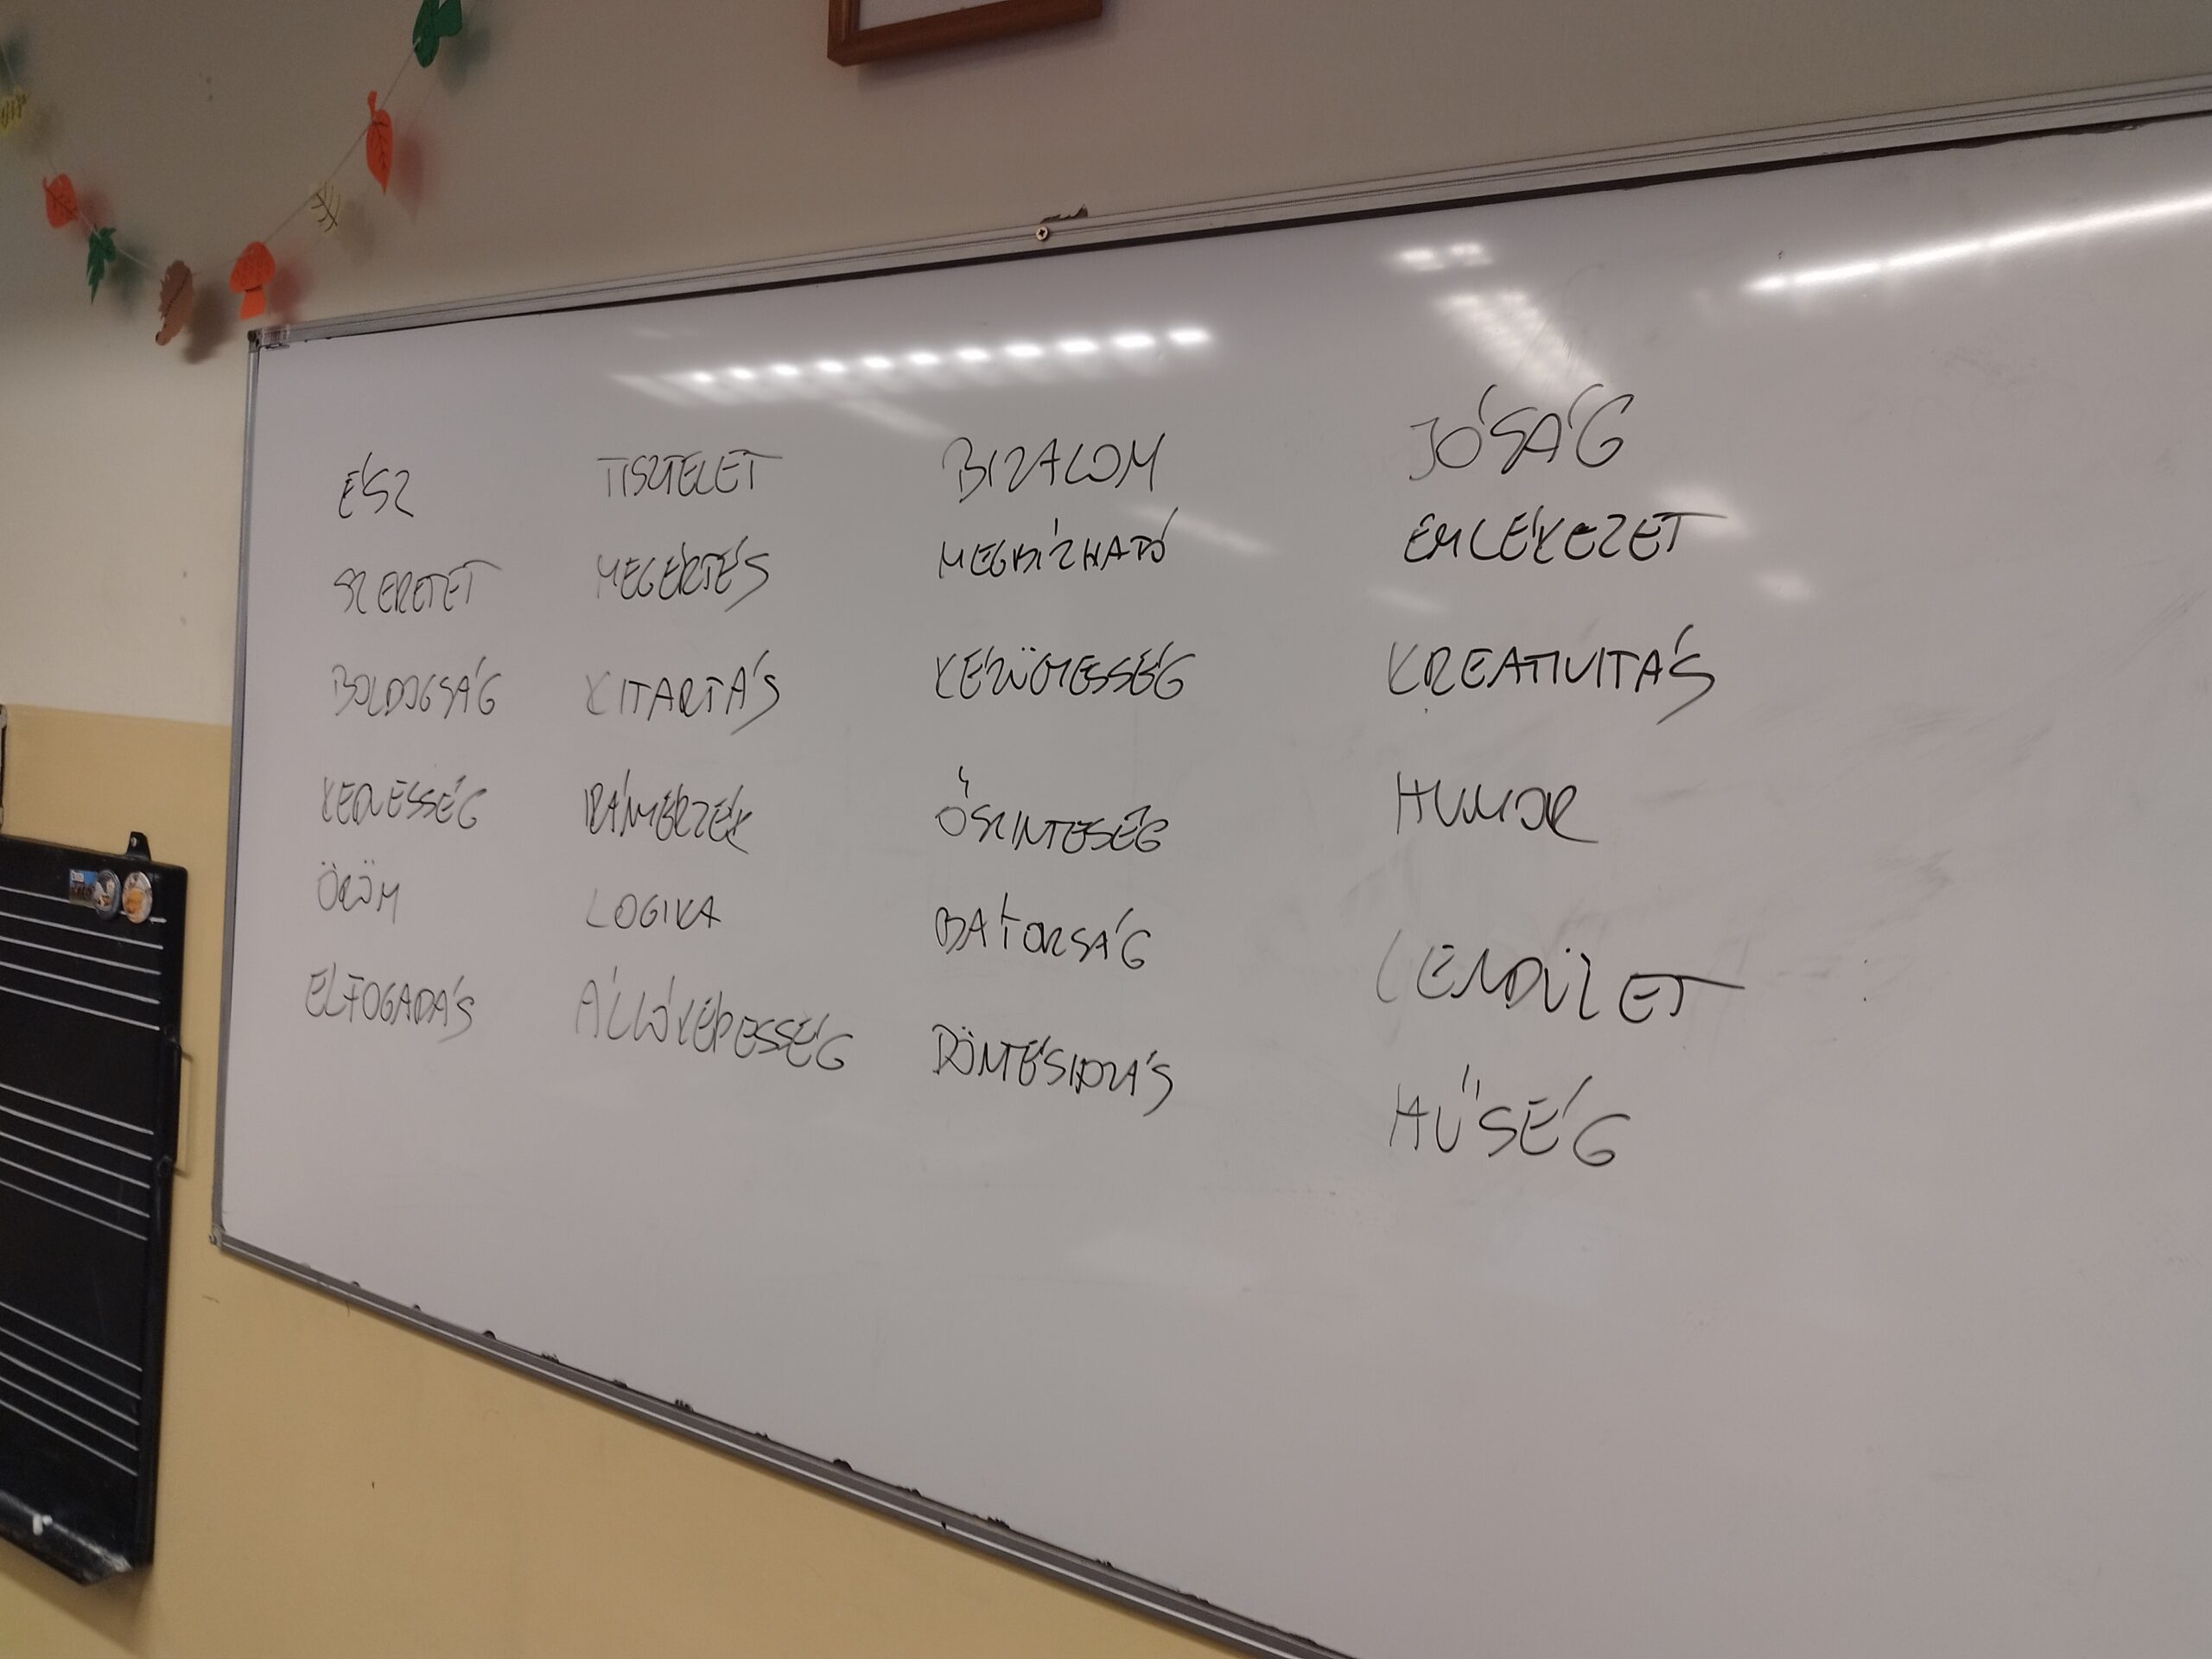 ÉSZ
SZERETET
BOLDOGSÁG
KEDVESSÉG
ÖRÖM
ELFOGADÁS
TISZTELET
MEGÉRTÉS
KITARTÁS
IRÁNYÉRZÉK
LOGIKA
ÁLLÓKÉPESSÉG
BIZALOM
MEGBÍZHATÓ
KÉZÜGYESSÉG
ŐSZINTESÉG
BÁTORSÁG
DÖNTÉSHOZÁS
JÓSÁG
EMLÉKEZET
KREATIVITÁS
HUMOR
LENDÜLET
HŰSÉG